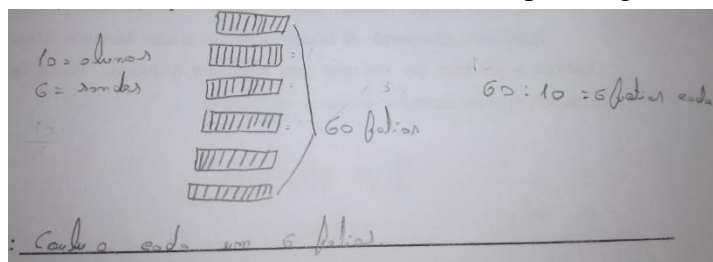 10 = alunos
6 = sandes
60 fatias
60 : 10 = 6 fatias cada
: Coube a cada um 6 fatias.